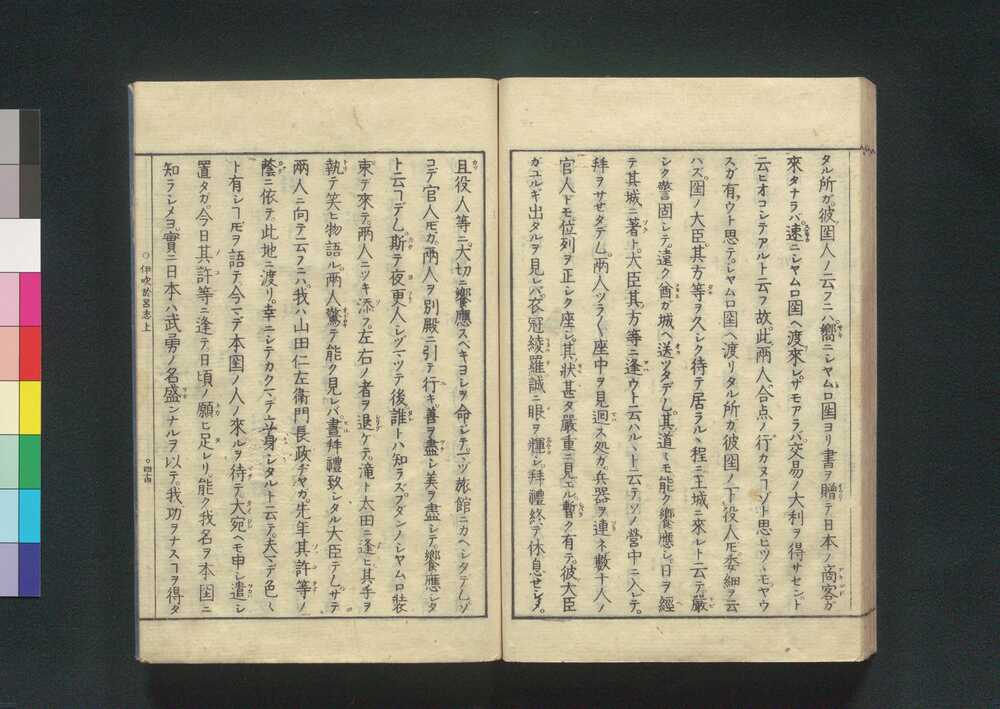 タル所ガ彼囯人ノ云フニハ嚮ニシヤムロ囯ヨリ書ヲ贈テ日本ノ商客ガ
來タナラバ速ニシヤムロ囯ヘ渡來レザモアラバ交易ノ大利ヲ得サセント
云ヒオコシテアルト云フ故此兩人合点ノ行カヌヿゾト思ヒツヽモヤウ
スガ有ウト思テシヤムロ囯ヘ渡リタル所ガ彼囯ノ下役人𪜈委細ヲ云
ハズ囯ノ大臣其方等ヲ久シク待テ居ラルヽ程ニ王城ニ來レト云テ嚴
シク警固シテ遠ク酋ガ城ヘ送ツタデム其道ニモ能ク饗應シ日ヲ經
テ其城ニ著ト大臣其方等ニ逢ウト云ハルヽト云テソノ營中ニ入レテ
拜ヲサセタテム兩人ツラ〱座中ヲ見廻ス処ガ兵器ヲ連ネ數十人ノ
官人ドモ位列ヲ正シク座シ其狀甚タ嚴重ニ見エル暫ク有テ彼大臣
ガユルギ出タルヲ見レバ衣冠綾羅誠ニ眼ヲ輝シ拜禮終テ休息セシメ
且役人等ニ大切ニ饗應スヘキヨシヲ命シテ一ツ旅館ニカヘシタテムソ
コデ官人𪜈ガ兩人ヲ別殿ニ引テ行キ善ヲ盡シ美ヲ盡シテ饗應シタ
ト云ヿデム斯テ夜更人シヅマツテ後誰トハ知ラスプタンノシヤムロ裝
束デ來テ兩人ニツキ添フ左右ノ者ヲ退ケテ滝ト太田ニ逢ヒ其手ヲ
執テ笑ヒ物語ル兩人驚テ能ク見レバ晝拜禮致シタル大臣テムサテ
兩人ニ向テ云フニハ我ハ山田仁左衛門長政ヂヤガ先年其許等ノ
蔭ニ依テ此地ニ渡リ幸ニシテカクマデ立身シタルト云テ大マデ色〱
ト有シヿ𪜈ヲ語テ今マデ本囯ノ人ノ來ルヲ待テ大宛ヘモ申シ遣シ
置タガ今日其許等ニ逢テ日頃ノ願ヒ足レリ能ク我名ヲ本囯ニ
知ラシメヨ實ニ日本ハ武勇ノ名盛ンナルヲ以テ我功ヲナスヿヲ得タ
伊吹於呂志上